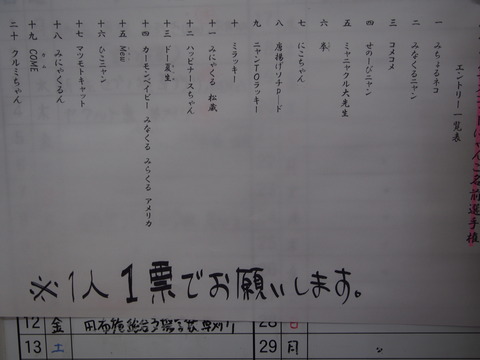 にゃんこ名前選手権
エントリー一覧表
一 みちょるネコ
二 みなくるニャン
三 コメコメ
四 せのーびニャン
五 ミャニャクル大先生
六 拳
七 にこちゃん
八 唐揚げソナpード
九 ニャンTOラッキー
十 ミラッキー
十一 みにゃくる 松蔵
十二 ハッピナースちゃん
十三 ドー夏生
十四 カーモンベイビー みなくる みらくる アメリカ
十五 Mew
十六 ひこニャン
十七 マツモトキャット
十八 みにゃくるん
十九 COME
二十 クルミちゃん
※1人1票でお願いします。
12 金
28 日
13 土
29 月